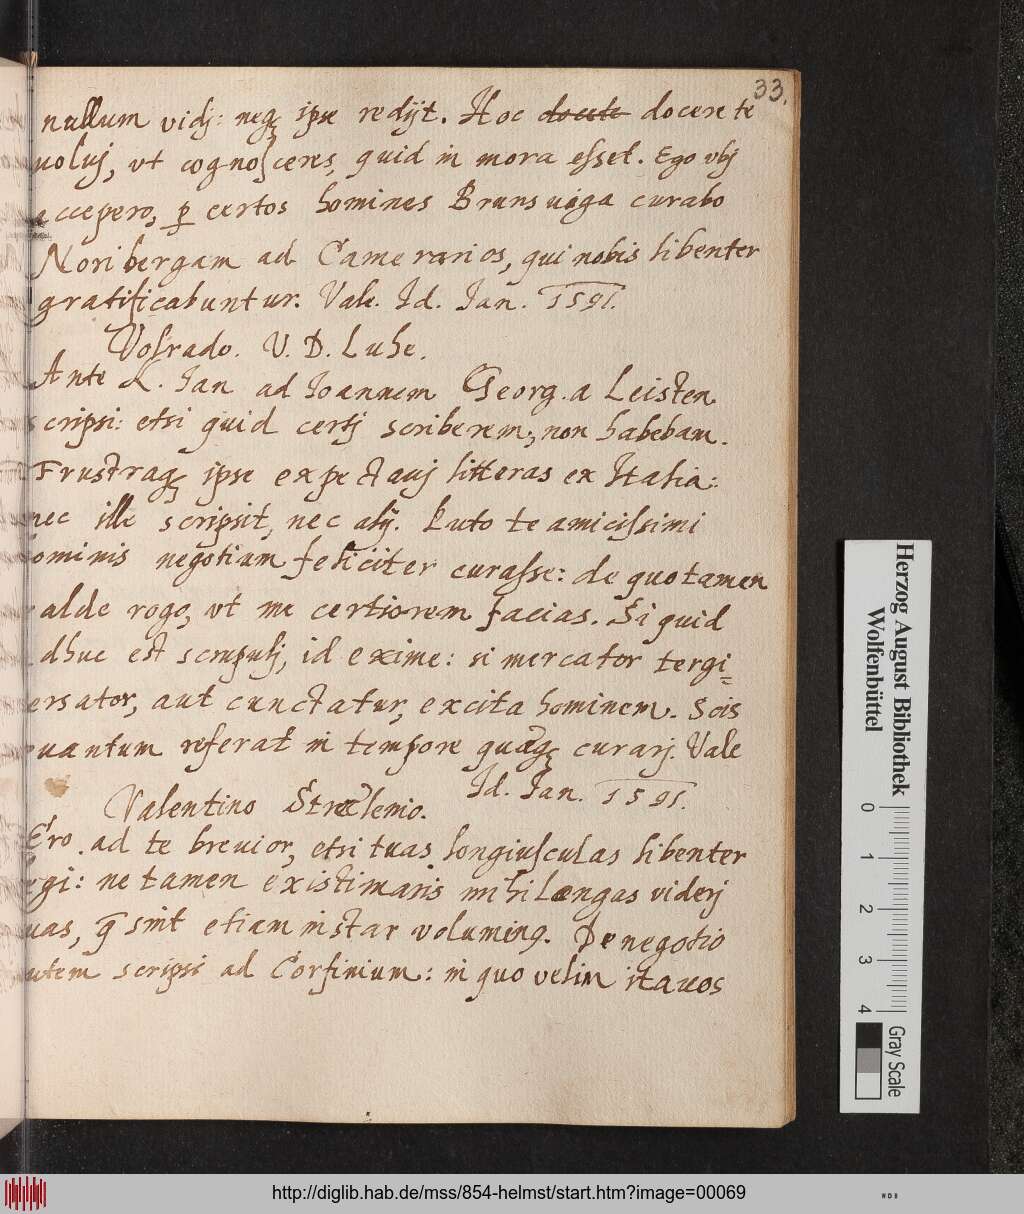 33.
nullum vidj: neq ipse redijt. Hoc docete docere te
uoluj, vt cognosceres, quid in mora esset. Ego vbj
accepero, p certos homines Brunsuiga curabo
Noribergam ad Camerarios, qui nobis libenter
gratificabuntur. Vale. Id. Jan. 1591.
Volrado. V. D. Luhe.
Ante K. Jan ad Joannem Georg. a Leisten
scripsi: etsi quid certj scriberem, non habebam.
Frustraq ipse expectauj litteras ex Italia:
nec ille scripsit, nec alij. Puto te amicissimi
hominis negotium feliciter curasse: de quo tamen
valde rogo, vt me certiorem facias. Si quid
adhuc est scrupulj, id exime: si mercator tergi=
uersator, aut cunctatur, excita hominem. Scis
quantum referat in tempore quæq curarj. Vale
Id. Jan. 1591.
Valentino Stralenio.
Ero ad te breuior, etsi tuas longiusculas libenter
legi: ne tamen existimaris mihi longas viderj
tuas, q sint etiam instar voluming. De negotio
autem scripsi ad Corfinium: in quo velim ita uos
Herzog August Bibliothek
Wolfenbüttel
0 1 2 3 4
Gray Scale
http://diglib.hab.de/mss/854-helmst/start.htm?image=00069
WDB